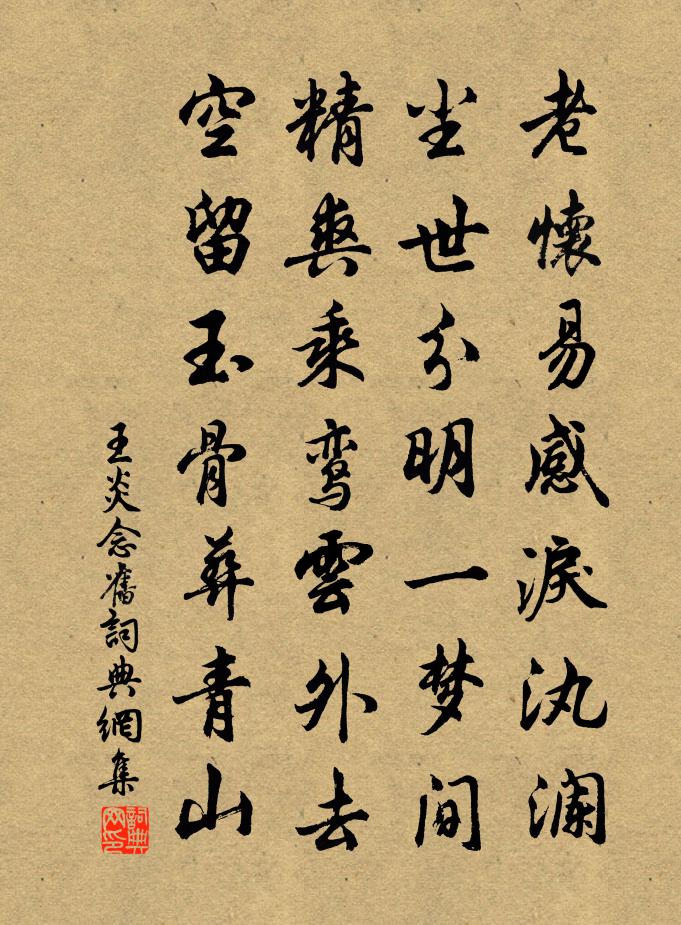 老懷易感淚汍澜
尘世分明一梦间
精爽乘鸾雲外去
空留玉骨葬青山
王炎念舊詞典網集
詞典网印